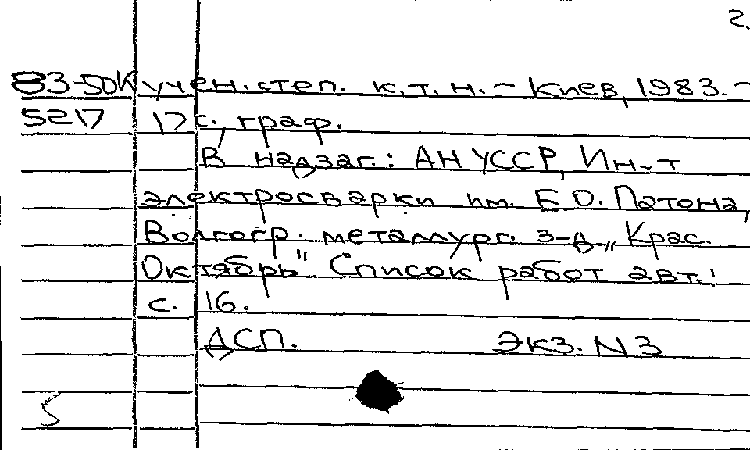 2.
83-50к учен. степ. к. т. н. – Киев, 1983. –
5217 17 с., граф.
В надзаг.: АН УССР, Ин-т
электросварки им. Е. О. Патона,
Волгогр. металлург. з-д „Крас.
Октябрь“. Список работ авт.:
с. 16.
ДСП. Экз. N 3
5